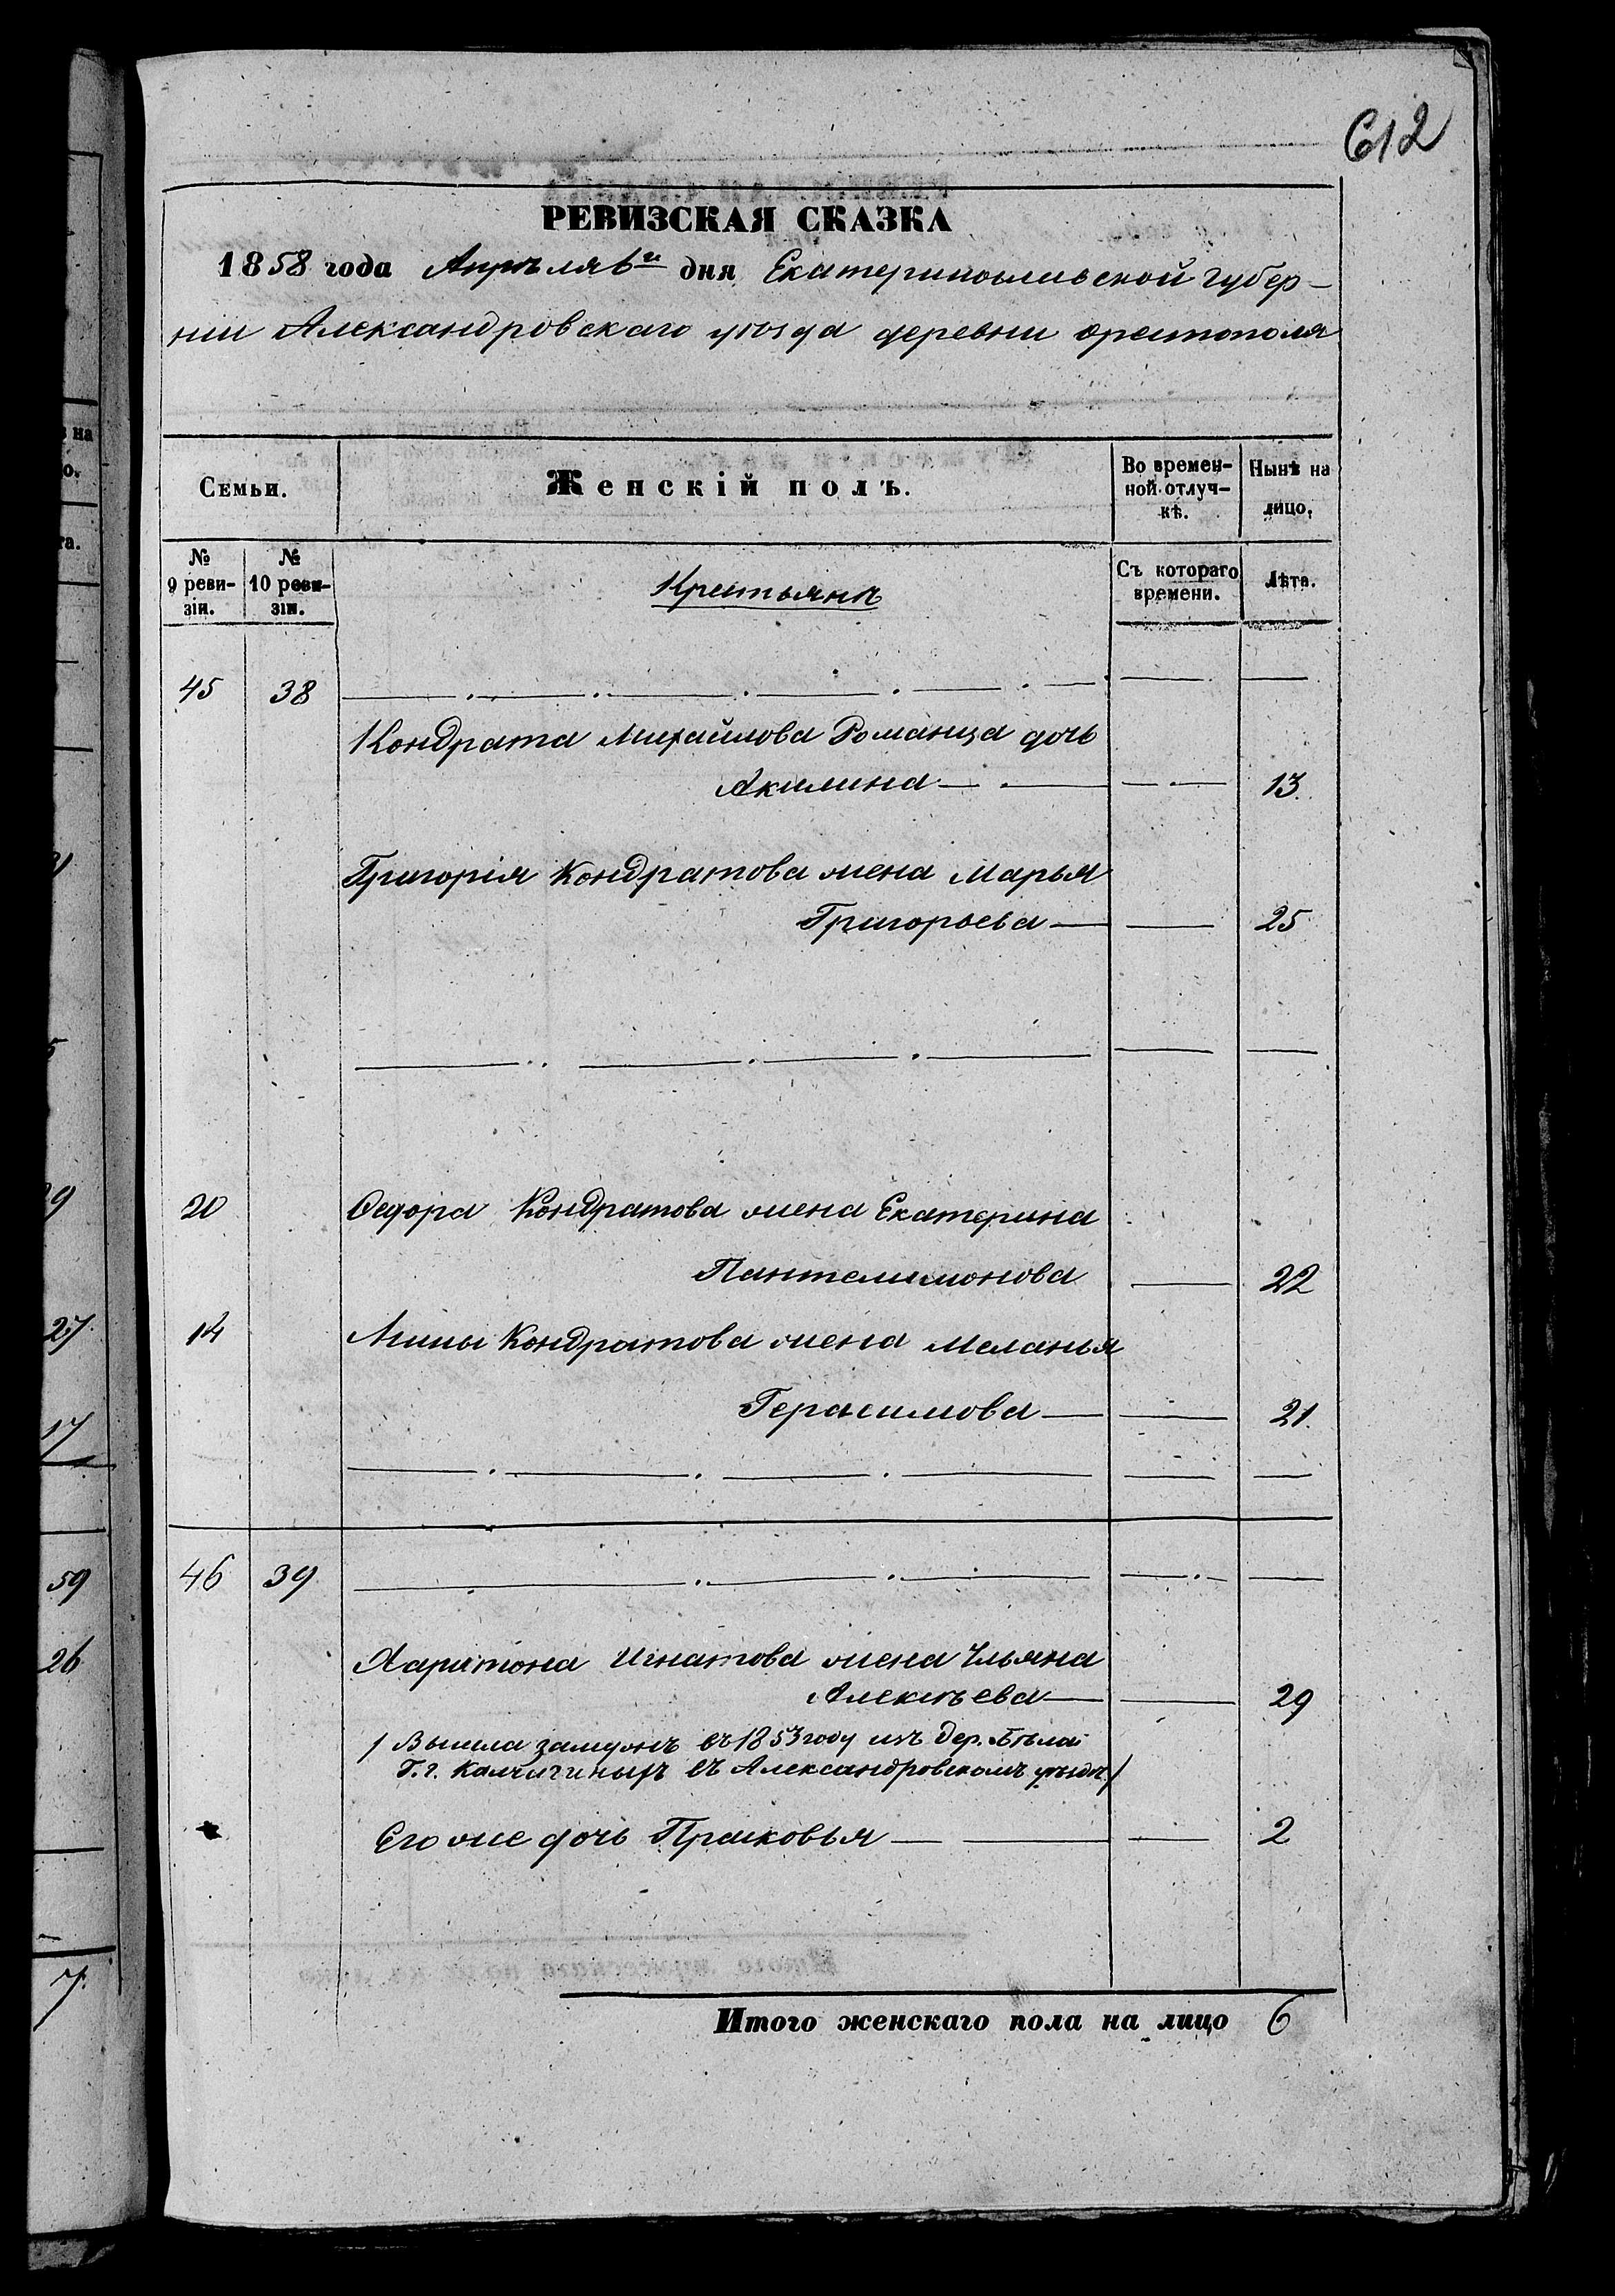 612
РЕВИЗСКАЯ СКАЗКА
1858 года Апрѣля 6го дня Екатеринославской Губер-
нии Александровскаго уѣзда деревни Орестополя
Семьи.
Женскій полъ.
Во времен-
ной отлуч-
кѣ.
Нынѣ на
лицо.
№
9 реви-
зіи.
№
10 реви-
зіи.
Крестьянъ
Съ котораго
времени.
Лѣта.
45 38
Кондрата Михайлова Романца дочь
Акилина 13.
Григорія Кондратова жена Марья
Григорьева 25
20 Ѳедора Кондратова жена Екатерина
Пантелимонова 22
14 Мины Кондратова жена Меланья
Герасимова 21.
46 39
Харитона Игнатова жена Ульяна
Алексѣева 29
/ Вышла замужъ въ 1853 году изъ дер. Бѣлой
Г. г. Калчигиныхъ въ Александровскомъ уѣздѣ /
Его же дочь Прасковья 2
Итого женскаго пола на лицо 6
на
о.
та.
9
27.
17
59
26
7.